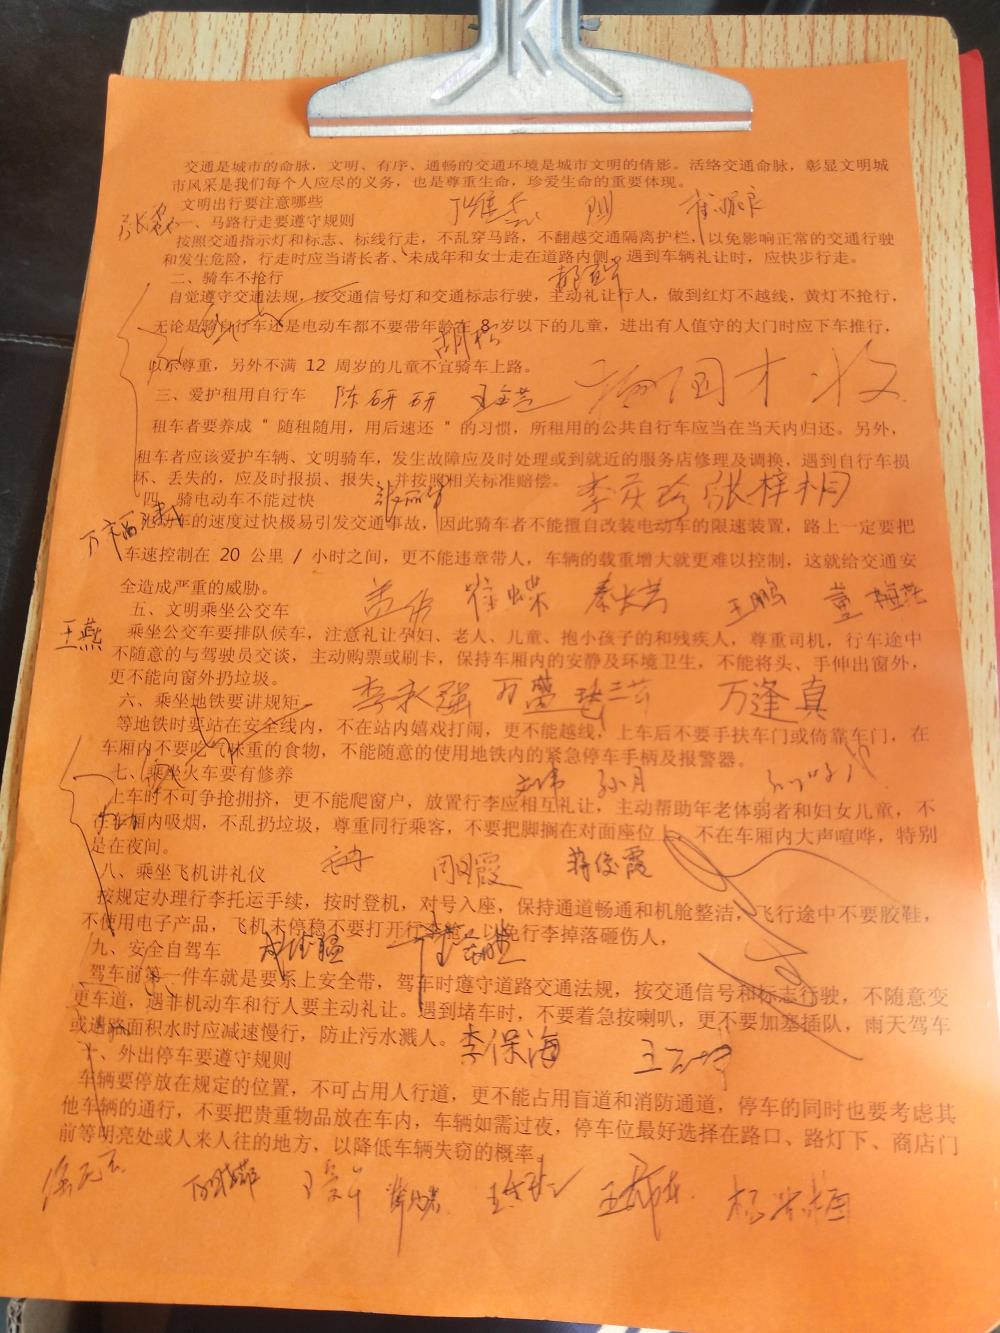 交通是城市的命脉，文明、有序、通畅的交通环境是城市文明的倩影。活络交通命脉，彰显文明城
市风采是我们每个人应尽的义务，也是尊重生命，珍爱生命的重要体现。
文明出行要注意哪些
一、马路行走要遵守规则
按照交通指示灯和标志、标线行走，不乱穿马路，不翻越交通隔离护栏，以免影响正常的交通行驶
和发生危险，行走时应当请长者、未成年和女士走在道路内侧，遇到车辆礼让时，应快步行走。
二、骑车不抢行
自觉遵守交通法规，按交通信号灯和交通标志行驶，主动礼让行人，做到红灯不越线，黄灯不抢行，
无论是骑自行车还是电动车都不要带年龄在 8 岁以下的儿童，进出有人值守的大门时应下车推行，
胡松
以示尊重，另外不满 12 周岁的儿童不宜骑车上路。
三、爱护租用自行车 陈研研
租车者要养成 " 随租随用，用后速还 " 的习惯，所租用的公共自行车应当在当天内归还。另外，
租车者应该爱护车辆、文明骑车，发生故障应及时处理或到就近的服务店修理及调换，遇到自行车损
坏、丢失的，应及时报损、报失，并按照相关标准赔偿。
四、骑电动车不能过快 张梓桐
电动车的速度过快极易引发交通事故，因此骑车者不能擅自改装电动车的限速装置，路上一定要把
车速控制在 20 公里 / 小时之间，更不能违章带人，车辆的载重增大就更难以控制，这就给交通安
全造成严重的威胁。
五、文明乘坐公交车 王鹏
王燕
乘坐公交车要排队候车，注意礼让孕妇、老人、儿童、抱小孩子的和残疾人，尊重司机，行车途中
不随意的与驾驶员交谈，主动购票或刷卡，保持车厢内的安静及环境卫生，不能将头、手伸出窗外，
更不能向窗外扔垃圾。
六、乘坐地铁要讲规矩 李永强 万逢真
等地铁时要站在安全线内，不在站内嬉戏打闹，更不能越线，上车后不要手扶车门或倚靠车门，在
车厢内不要吃气味重的食物，不能随意的使用地铁内的紧急停车手柄及报警器。
七、乘坐火车要有修养 孙月
上车时不可争抢拥挤，更不能爬窗户，放置行李应相互礼让，主动帮助年老体弱者和妇女儿童，不
在车厢内吸烟，不乱扔垃圾，尊重同行乘客，不要把脚搁在对面座位上，不在车厢内大声喧哗，特别
是在夜间。
八、乘坐飞机讲礼仪 蒋俊霞
按规定办理行李托运手续，按时登机，对号入座，保持通道畅通和机舱整洁，飞行途中不要胶鞋，
不使用电子产品，飞机未停稳不要打开行李舱，以免行李掉落砸伤人，
九、安全自驾车
驾车前第一件车就是要系上安全带，驾车时遵守道路交通法规，按交通信号和标志行驶，不随意变
更车道，遇非机动车和行人要主动礼让。遇到堵车时，不要着急按喇叭，更不要加塞插队，雨天驾车
或遇路面积水时应减速慢行，防止污水溅人。 李保海
十、外出停车要遵守规则
车辆要停放在规定的位置，不可占用人行道，更不能占用盲道和消防通道，停车的同时也要考虑其
他车辆的通行，不要把贵重物品放在车内，车辆如需过夜，停车位最好选择在路口、路灯下、商店门
前等明亮处或人来人往的地方，以降低车辆失窃的概率。